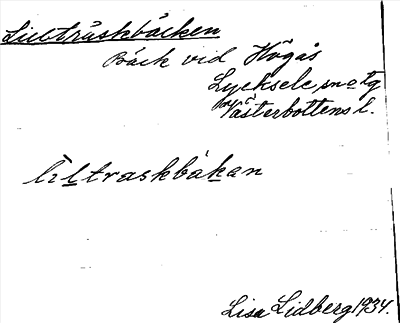 Lillträskbäcken
Bäck vid Högås
Lycksele sn o tg
Västerbottens l.
liltraskbákan
Lisa Lidberg 1934.